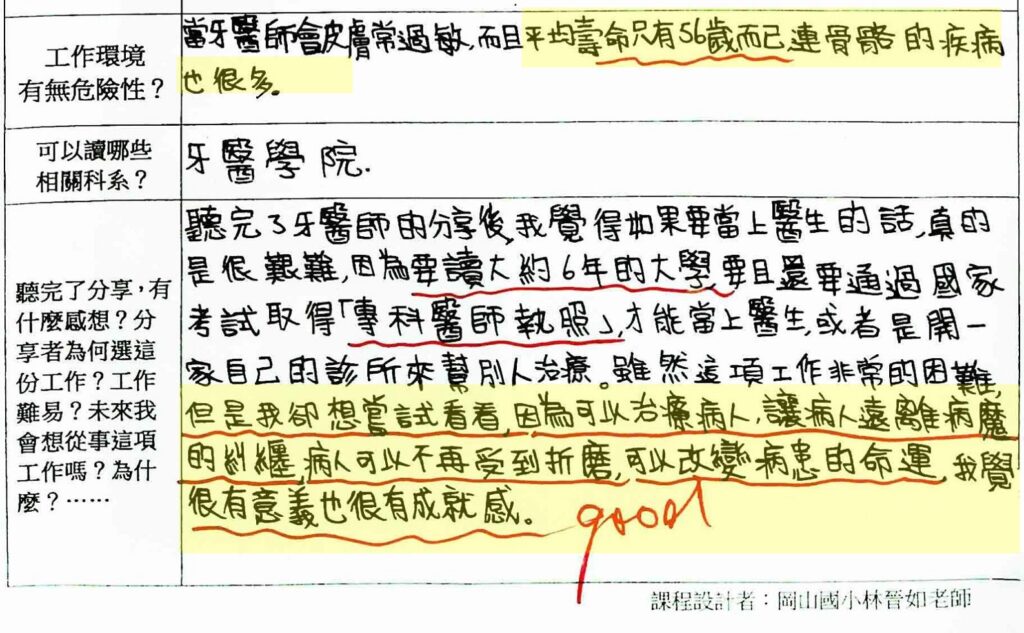 工作環境
有無危險性？
當牙醫師會皮膚常過敏，而且平均壽命只有56歲而已連骨骼的疾病
也很多。
可以讀哪些
相關科系？
牙醫學院．
聽完了分享，有
什麼感想？分
享者為何選這
份工作？工作
難易？未來我
會想從事這項
工作嗎？為什
麼？……
聽完了牙醫師的分享後，我覺得如果要當上醫生的話，真的
是很艱難，因為要讀大約6年的大學，要且還要通過國家
考試取得「專科醫師執照」，才能當上醫生，或者是開一
家自己的診所來幫別人治療。雖然這項工作非常的困難，
但是我卻想嘗試看看，因為可以治療病人，讓病人遠離病魔
的糾纏，病人可以不再受到折磨，可以改變病患的命運，我覺
很有意義也很有成就感。
good
課程設計者：岡山國小林晉如老師